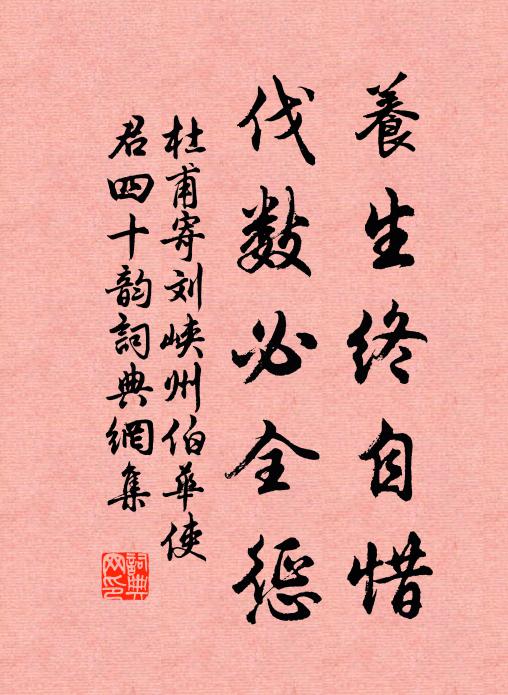 養生終自惜
伐數必全懲
杜甫寄刘峡州伯華使
君四十韵詞典網集
詞典
网印